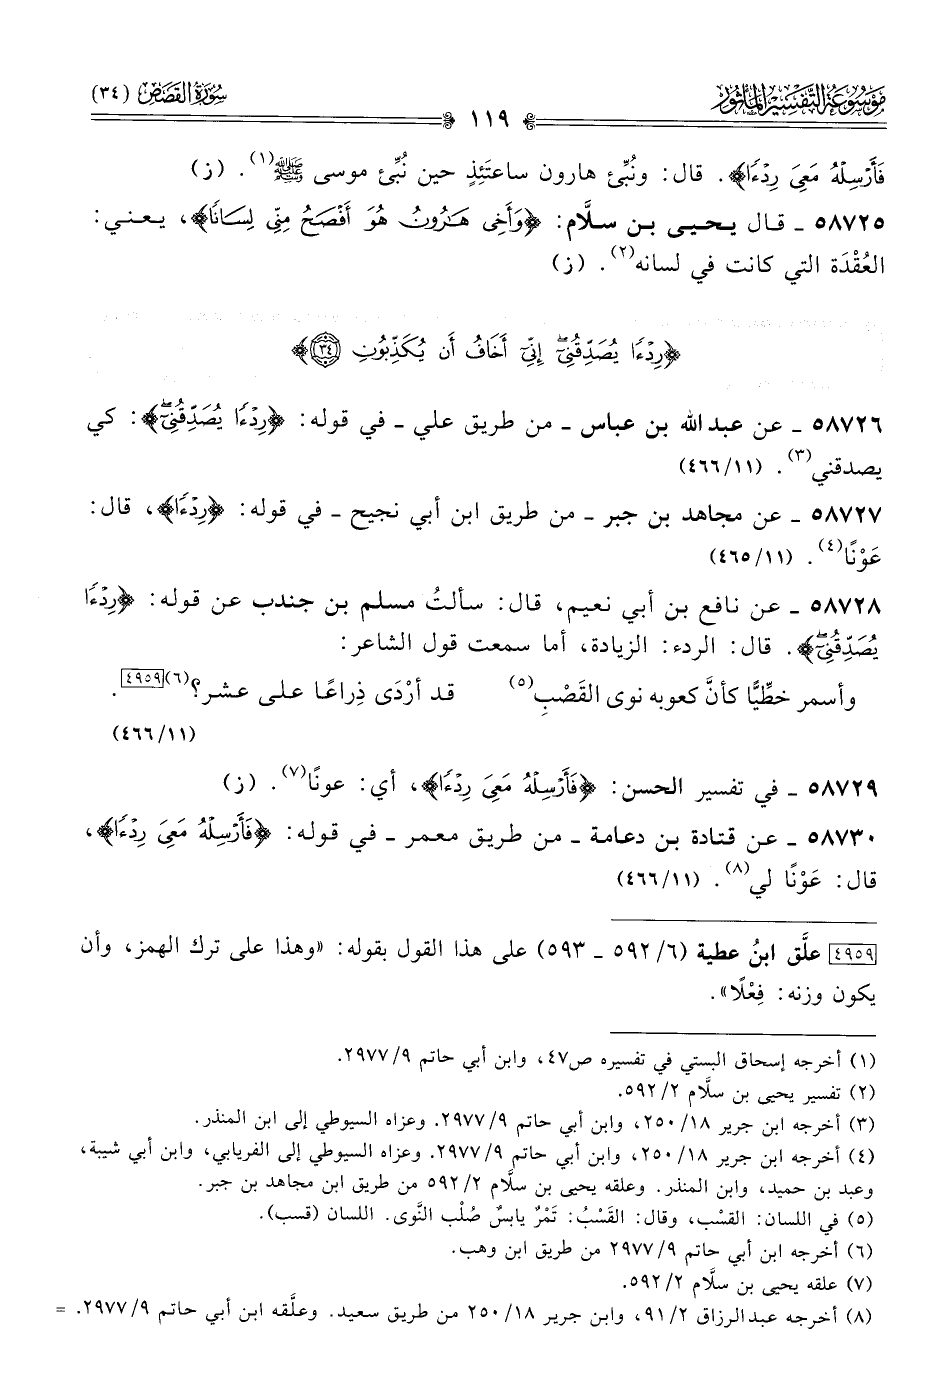 مَوْسُوعَة التَّفْسِيرِ المَأْثُور
١١٩
سُورَةُ القَصَصِ (٣٤)
فَأَرْسِلْهُ مَعِيَ رِدْءًا﴾. قال: ونُبِّئ هارون ساعتَئِذٍ حين نُبِّئ موسى ﷺ(١). (ز)
٥٨٧٢٥ ـ قال يحيى بن سلَّام: ﴿وَأَخِي هَارُونُ هُوَ أَفْصَحُ مِنِّي لِسَانًا﴾، يعني:
العُقْدَة التي كانت في لسانه(٢). (ز)
﴿رِدْءًا يُصَدِّقُنِيٓ إِنِّيٓ أَخَافُ أَن يُكَذِّبُونِ ٣٤﴾
٥٨٧٢٦ ـ عن عبد الله بن عباس ـ من طريق علي ـ في قوله: ﴿رِدْءًا يُصَدِّقُنِيٓ﴾: كي
يصدقني(٣). (٤٦٦/١١)
٥٨٧٢٧ ـ عن مجاهد بن جبر ـ من طريق ابن أبي نجيح ـ في قوله: ﴿رِدْءًا﴾، قال:
عَوْنًا(٤). (٤٦٥/١١)
٥٨٧٢٨ ـ عن نافع بن أبي نعيم، قال: سألتُ مسلم بن جندب عن قوله: ﴿رِدْءًا
يُصَدِّقُنِيٓ﴾. قال: الردء: الزيادة، أما سمعت قول الشاعر:
وأسمر خطِّيًّا كأنَّ كعوبه نوى القَصْبِ(٥) قد أرْدَى ذِراعًا على عشر؟(٦)[٤٩٥٩].
(٤٦٦/١١)
٥٨٧٢٩ ـ في تفسير الحسن: ﴿فَأَرْسِلْهُ مَعِيَ رِدْءًا﴾، أي: عونًا(٧). (ز)
٥٨٧٣٠ ـ عن قتادة بن دعامة ـ من طريق معمر ـ في قوله: ﴿فَأَرْسِلْهُ مَعِيَ رِدْءًا﴾،
قال: عَوْنًا لي(٨). (٤٦٦/١١)
[٤٩٥٩] علَّق ابنُ عطية (٦/ ٥٩٢ ـ ٥٩٣) على هذا القول بقوله: «وهذا على ترك الهمز، وأن
يكون وزنه: فِعْلًا».
(١) أخرجه إسحاق البستي في تفسيره ص٤٧، وابن أبي حاتم ٩/ ٢٩٧٧.
(٢) تفسير يحيى بن سلَّام ٢/ ٥٩٢.
(٣) أخرجه ابن جرير ١٨/ ٢٥٠، وابن أبي حاتم ٩/ ٢٩٧٧. وعزاه السيوطي إلى ابن المنذر.
(٤) أخرجه ابن جرير ١٨/ ٢٥٠، وابن أبي حاتم ٩/ ٢٩٧٧. وعزاه السيوطي إلى الفريابي، وابن أبي شيبة،
وعبد بن حميد، وابن المنذر. وعلقه يحيى بن سلَّام ٢/ ٥٩٢ من طريق ابن مجاهد بن جبر.
(٥) في اللسان: القسْب، وقال: القَسْبُ: تَمْرٌ يابسٌ صُلْب النَّوى. اللسان (قسب).
(٦) أخرجه ابن أبي حاتم ٩/ ٢٩٧٧ من طريق ابن وهب.
(٧) علقه يحيى بن سلَّام ٢/ ٥٩٢.
(٨) أخرجه عبدالرزاق ٢/ ٩١، وابن جرير ١٨/ ٢٥٠ من طريق سعيد. وعلَّقه ابن أبي حاتم ٩/ ٢٩٧٧. =